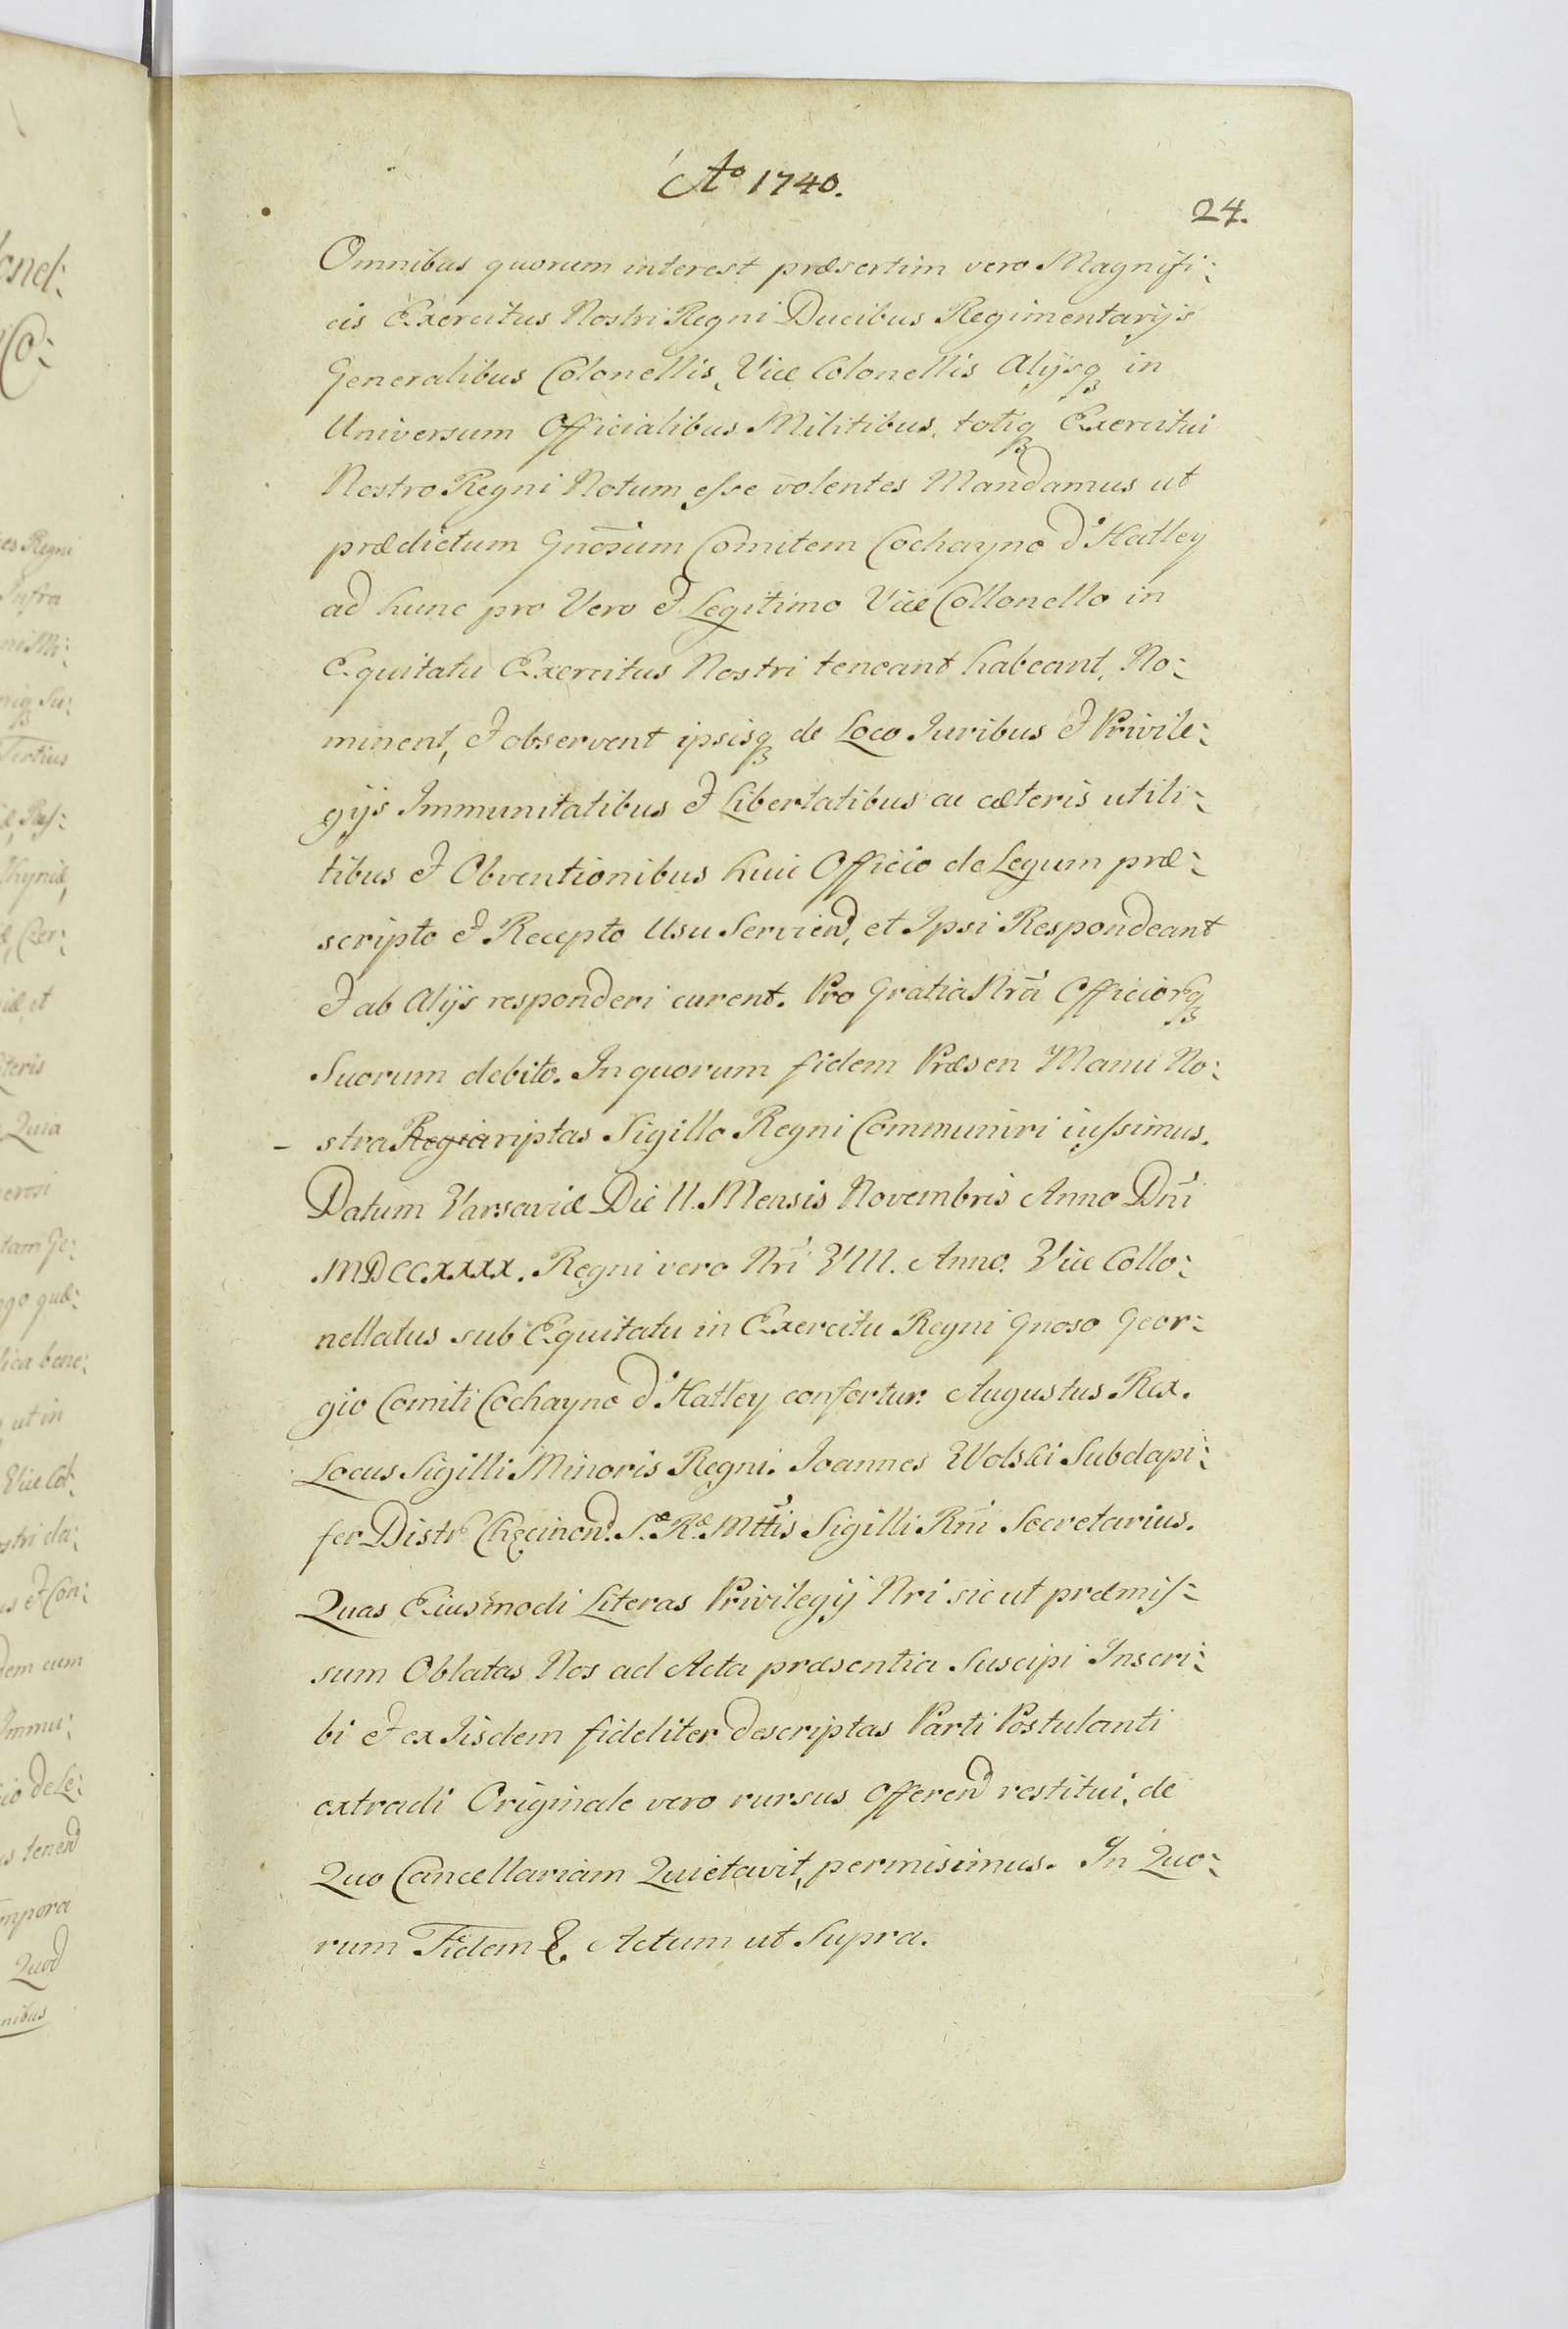 Ao 1740.
24.
Omnibus quorum interest præsertim vero Magnifi:
cis Exercitus Nostri Regni Ducibus Regimentarijs
Generalibus Colonellis, Vice Colonellis Alijsq in
Universum Officialibus Militibus, totiq Exercitui
Nostro Regni Notum esse volentes Mandamus ut
prædictum Gnosum Comitem Cochayno d'Hatley
ad hunc pro Vero et Legitimo Vice Collonello in
Equitatu Exercitus Nostri teneant habeant, No:
minent, et observent ipsisq de Loco Iuribus et Privile:
gijs Immunitatibus et Libertatibus ac cæteris utili:
tibus et Obventionibus huic Officio de Legum præ:
scripto et Recepto Usu Serviend, et Ipsi Respondeant
et ab Alijs responderi curent. Pro Gratia Nrã Officiorq
Suorum debito. In quorum fidem Præsen Manu No:
- stra Regia riptas Sigillo Regni Communiri iussimus.
Datum Varsaviæ Die 11. Mensis Novembris Anno Dni
MDCCXXXX. Regni vero Nri VIII. Anno. Vice Collo:
nellatus sub Equitatu in Exercitu Regni Gnoso Geor:
gio Comiti Cochayno d'Hatley confertur. Augustus Rex.
Locus Sigilli Minoris Regni. Joannes Wolski Subdapi:
fer Distr. Chęcinen. S.æ R.æ Mttis Sigilli Rni Secretarius.
Quas Eiusmodi Literas Privilegij Nri sic ut præmis:
sum Oblatas Nos ad Acta præsentia Suscipi Inscri:
bi et ex Iisdem fideliter descriptas Parti Postulanti
extradi Originale vero rursus Offerend restitui, de
Quo Cancellariam Quietavit, permisimus. In Quo:
rum Fidem &. Actum ut Supra.